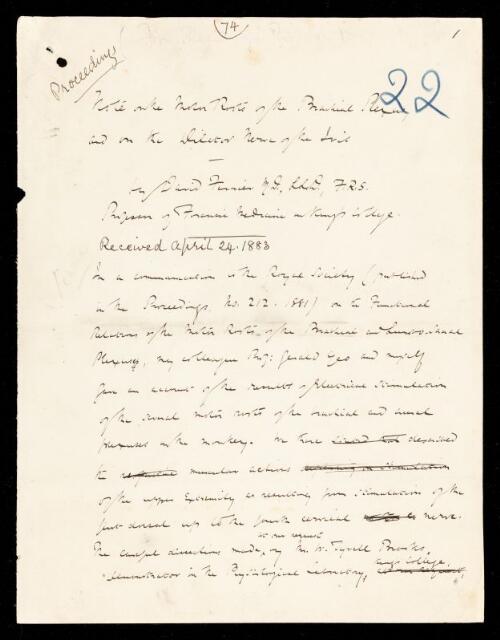 74
1
Proceedings
22
Note on the Motor Roots of the Brachial Plexus,
and on the Dilator Nerve of the Iris
—
by David Ferrier M.D., LL.D., F.R.S.
Professor of Forensic Medicine in King's College.
Received April 24. 1883
In a communication to the Royal Society (published
in the Proceedings, No. 212. 1881) on the Functional
Relations of the Motor Roots of the Brachial and Lumbo-sacral
Plexuses, my colleague Prof: Gerald Yeo and myself
gave an account of the results of electrical stimulation
of the several motor roots of the brachial and crural
plexuses in the monkey. We there described
the muscular actions
of the upper extremity as resulting from stimulation of the
first dorsal up to the fourth cervical nerve.
at our request
The careful dissections made, by Mr. W. Tyrrell Brooks,
King's College,
Demonstrator in the Physiological Laboratory,